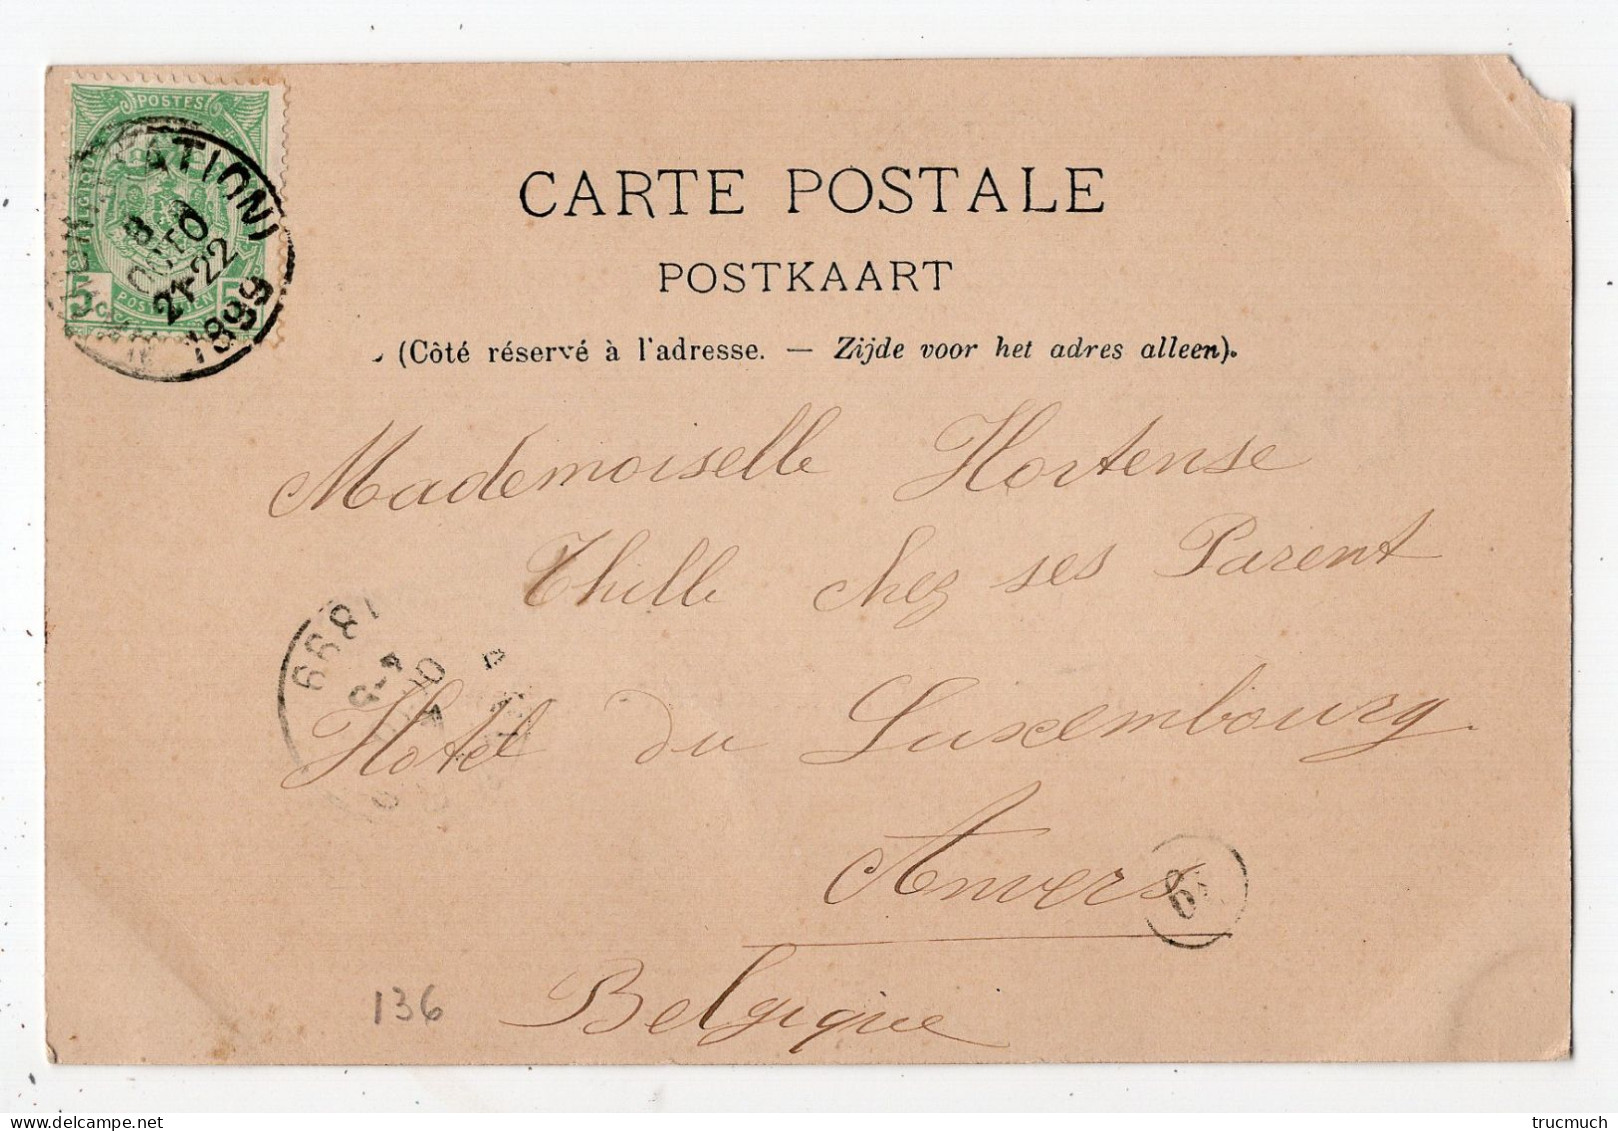 POSTES
5c 5
(STATION)
21-22
1899
CARTE POSTALE
POSTKAART
(Côté réservé à l'adresse. — Zijde voor het adres alleen).
Mademoiselle Hortense
Thille chez ses Parent
1899
Hotel du Luxembourg
Anvers
Belgique
136
trucmuch